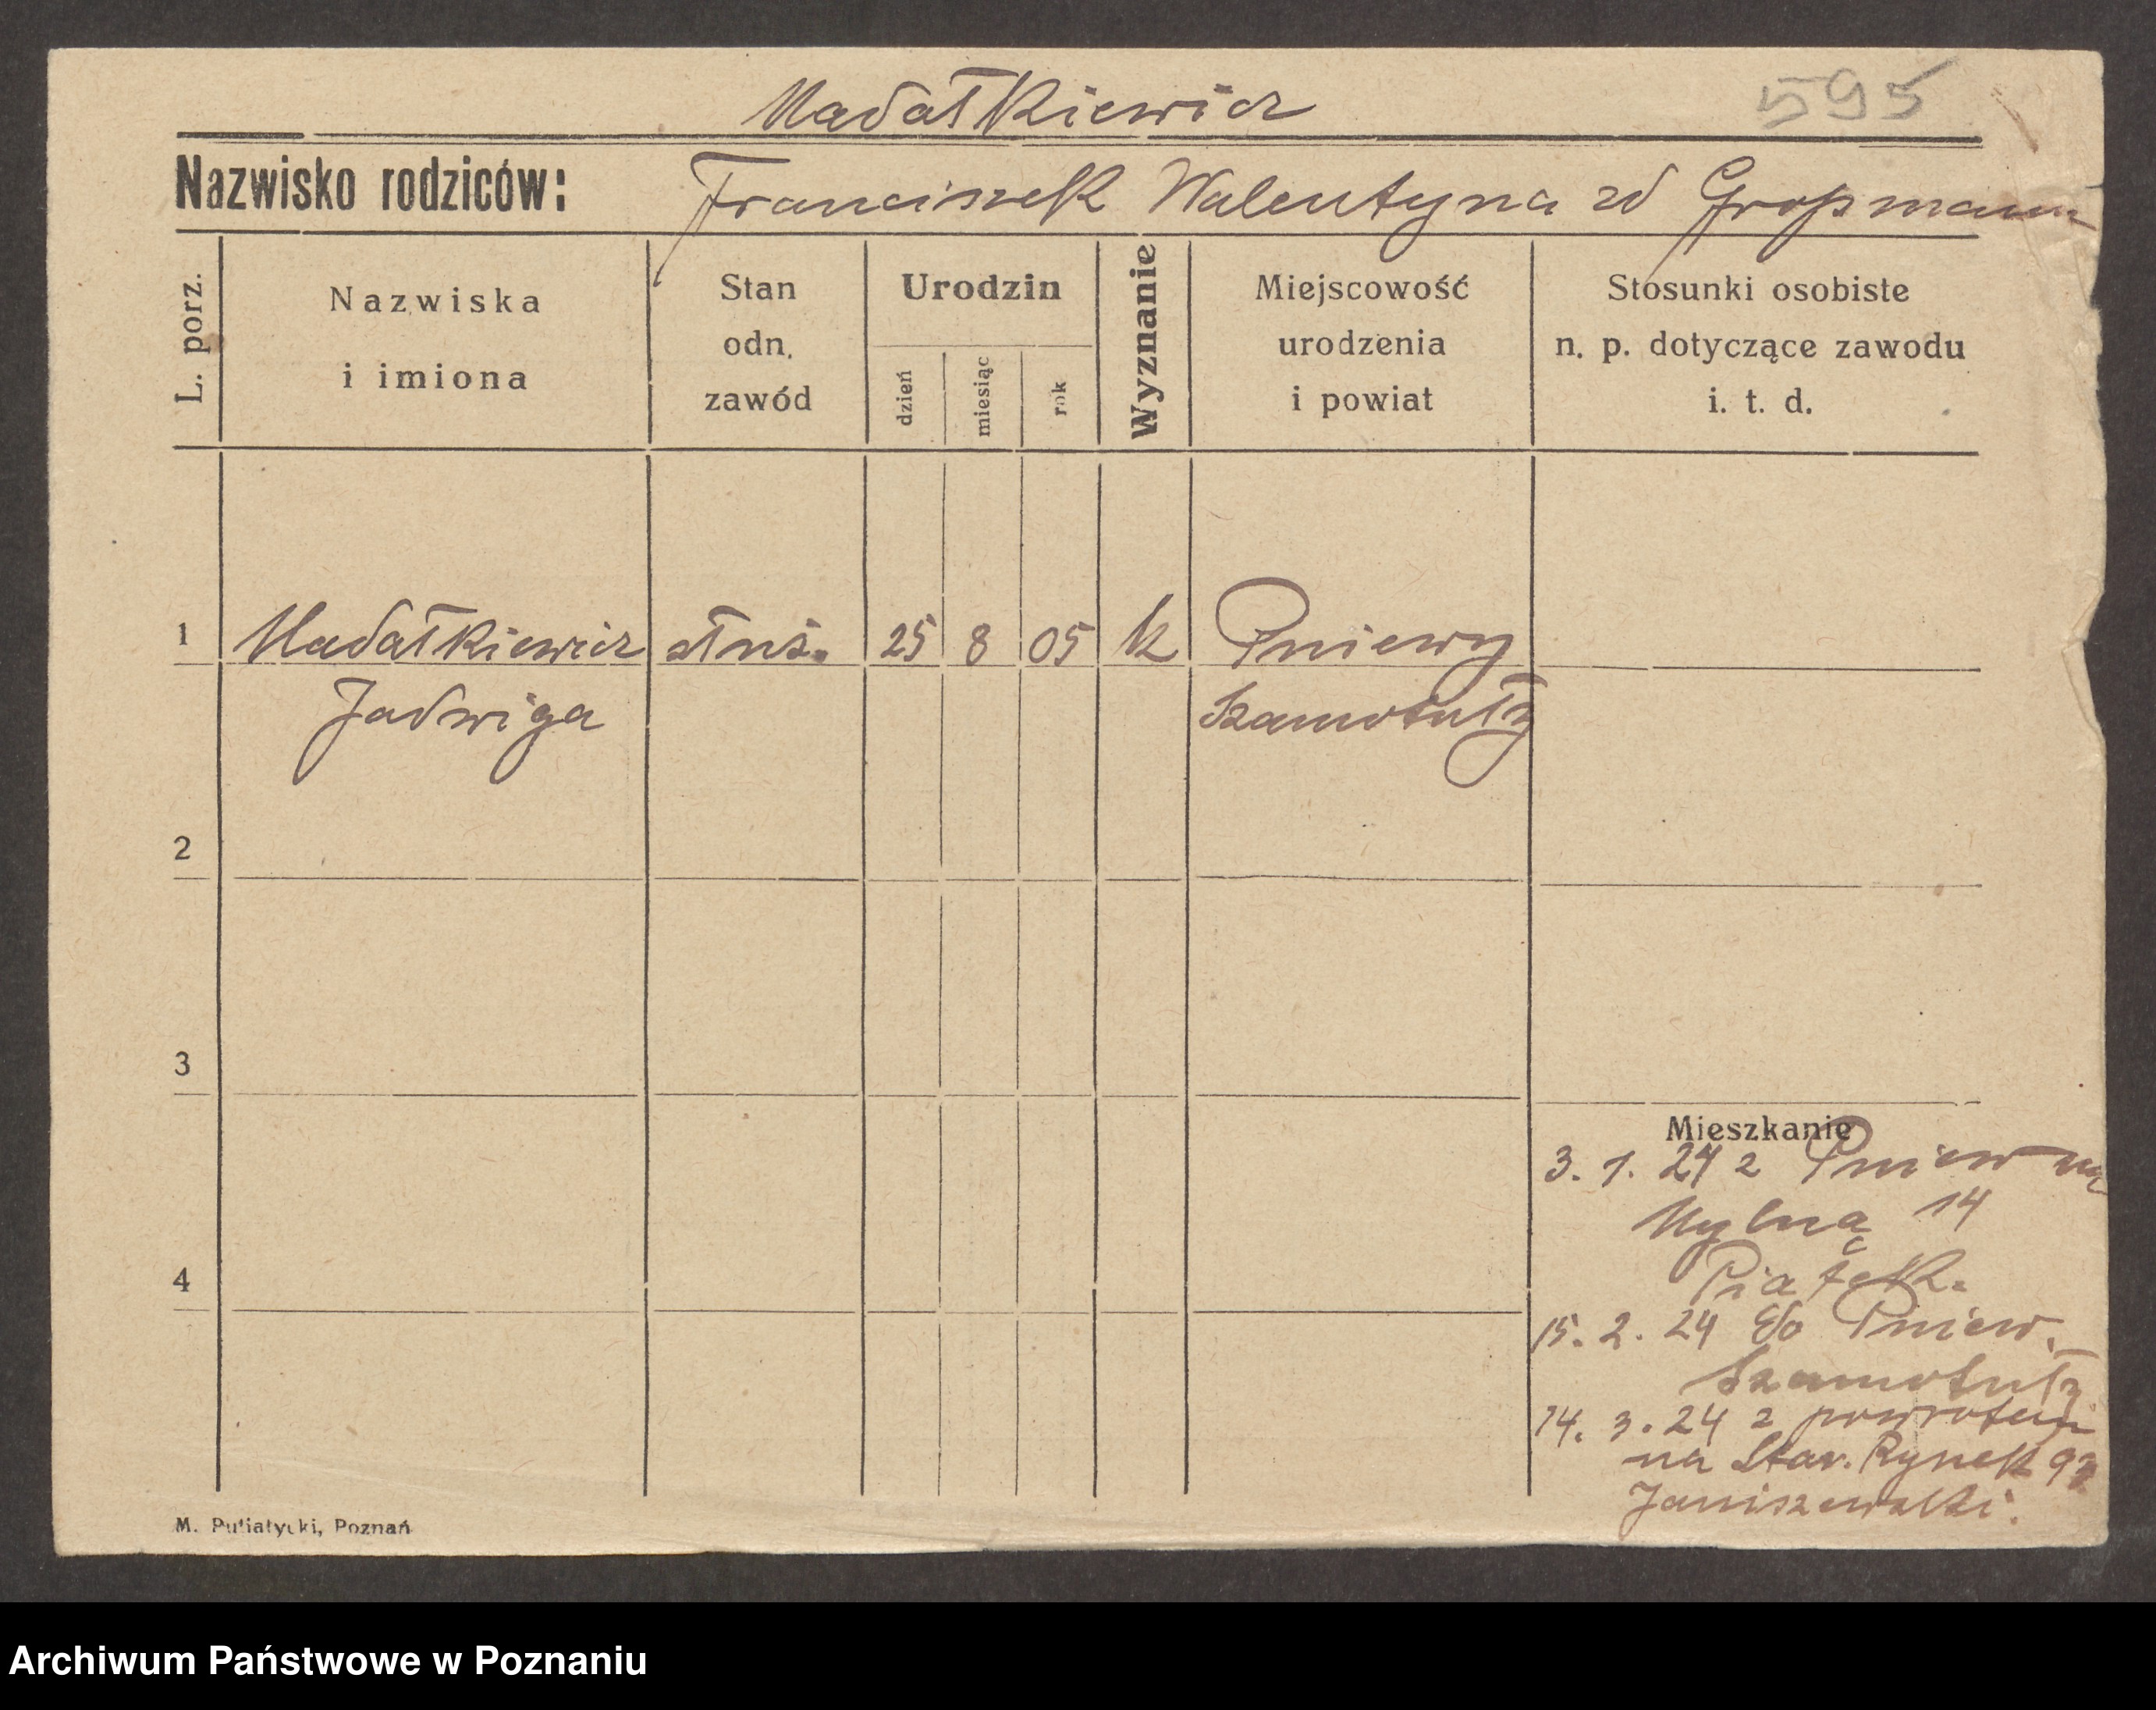 Madałkiewicz
595
Nazwisko rodziców: Franciszek Walentyna zd Großmann
L. porz.
Nazwiska i imiona
Stan odn. zawód
Urodzin
dzień
miesiąc
rok
Wyznanie
Miejscowość urodzenia i powiat
Stosunki osobiste n. p. dotyczące zawodu i. t. d.
1 Madałkiewicz służ. 25 8 05 k Pniewy
Jadwiga Szamotuły
2
3
Mieszkanie
3. 1. 24 z Pniew na
Mylną 14
4
Piątek.
15. 2. 24 do Pniew.
Szamotuły
14. 3. 24 z powrotem
na Star. Rynek
Janiszewski.
M. Putiatycki, Poznań
Archiwum Państwowe w Poznaniu